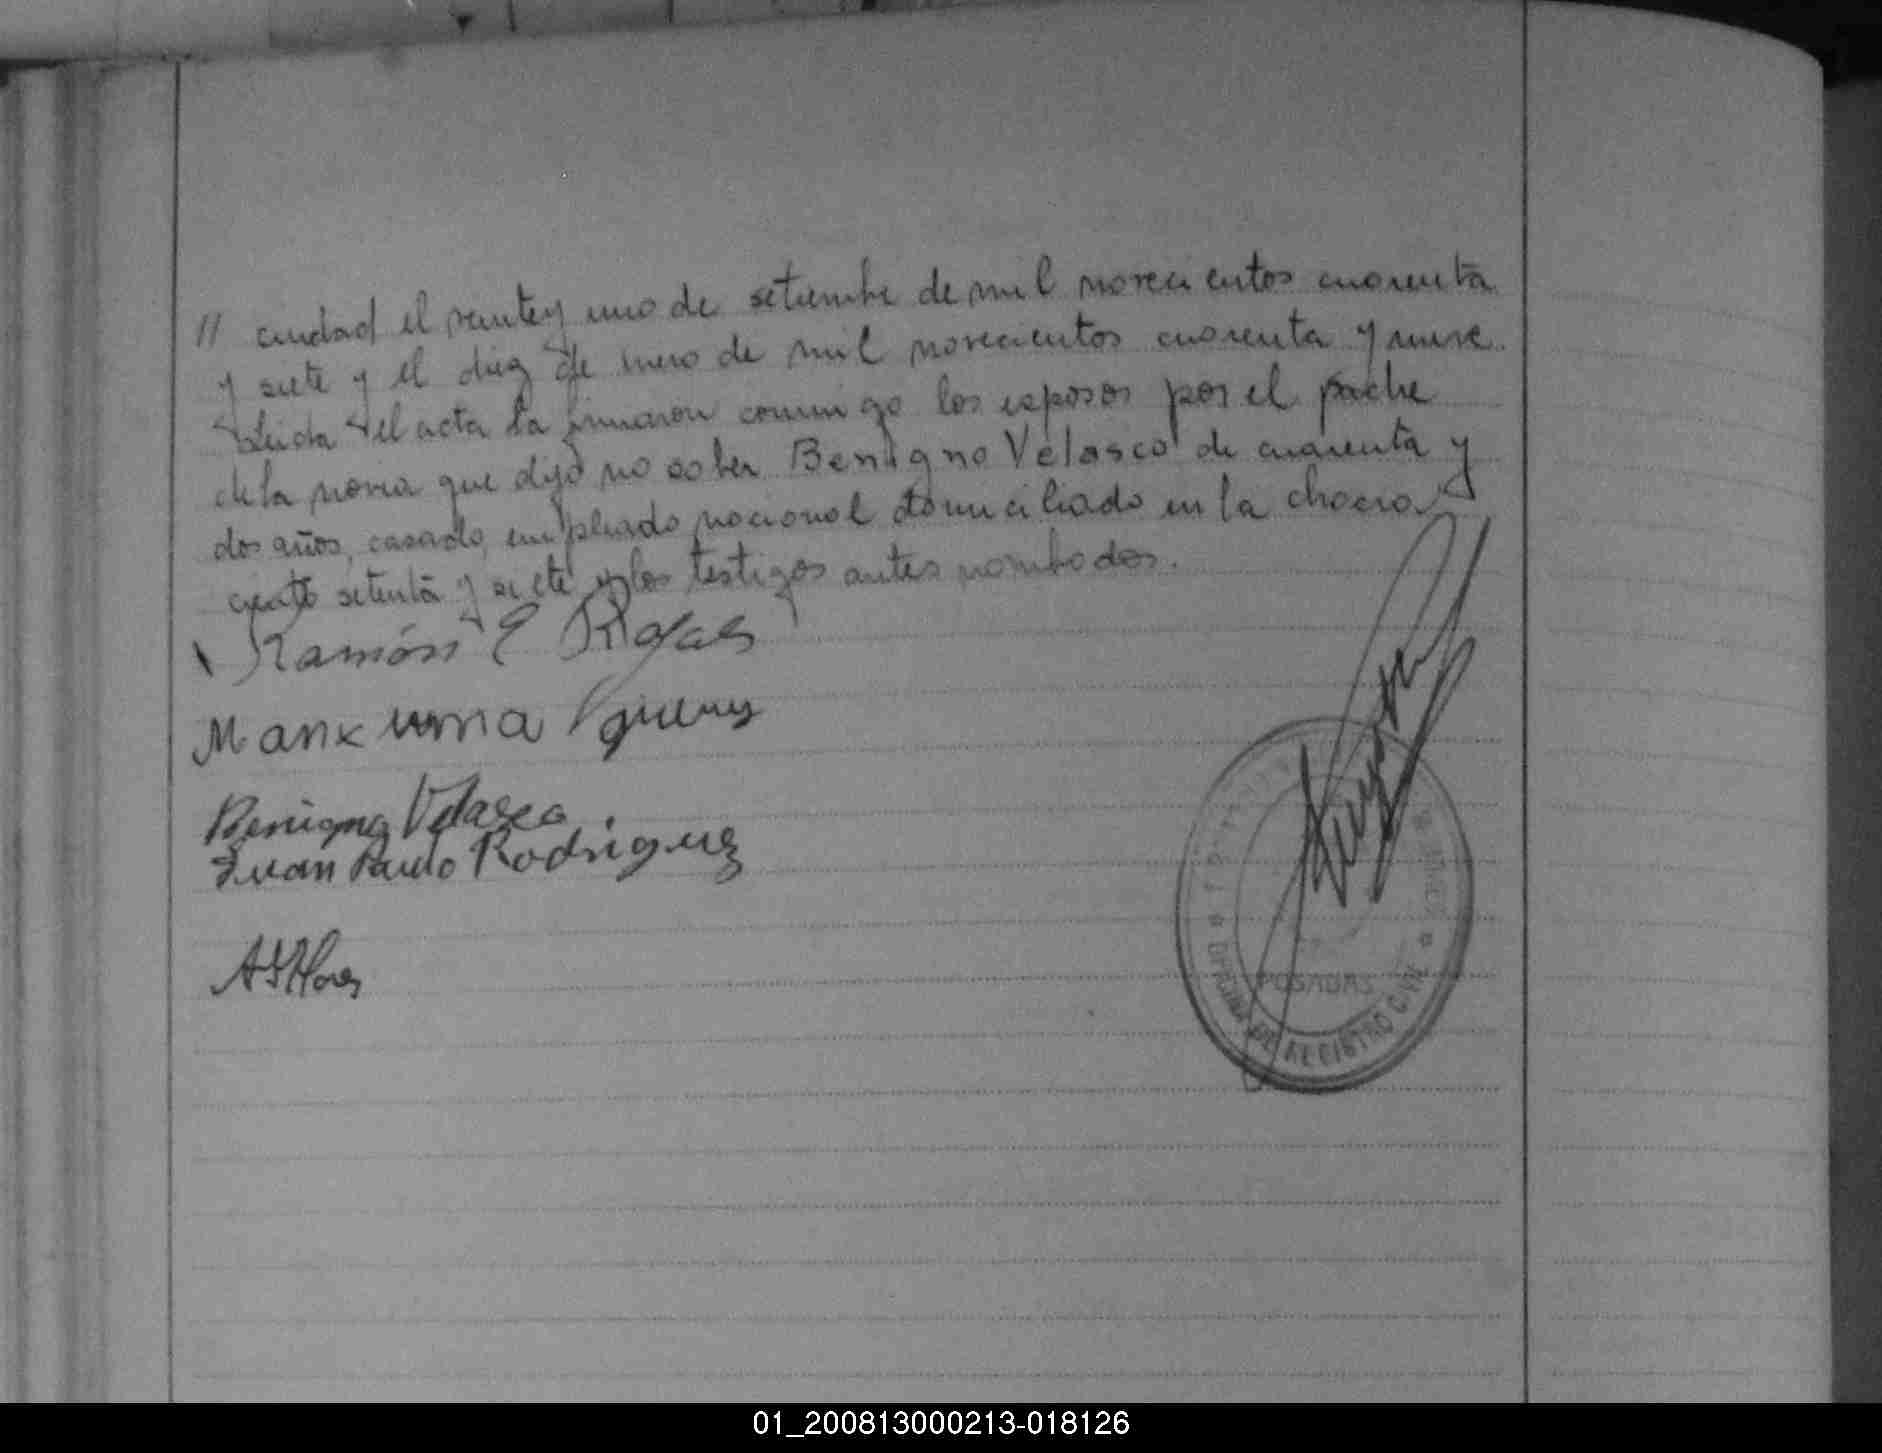 // ciudad el veinte y uno de setiembre de mil novecientos cuarenta
y siete y el diez de enero de mil novecientos cuarenta y nueve.
Leida el acta la firmaron conmigo los esposos por el padre
de la novia que dijo no saber Benigno Velasco de cuarenta y
dos años, casado, empleado nacional domiciliado en la chacra
ciento setenta y siete y los testigos antes nombados.
Ramón E Rojas
Benigno Velasco
Juan Paulo Rodriguez
POSADAS
OFICINA DE REGISTRO CIVIL
01_200813000213-018126